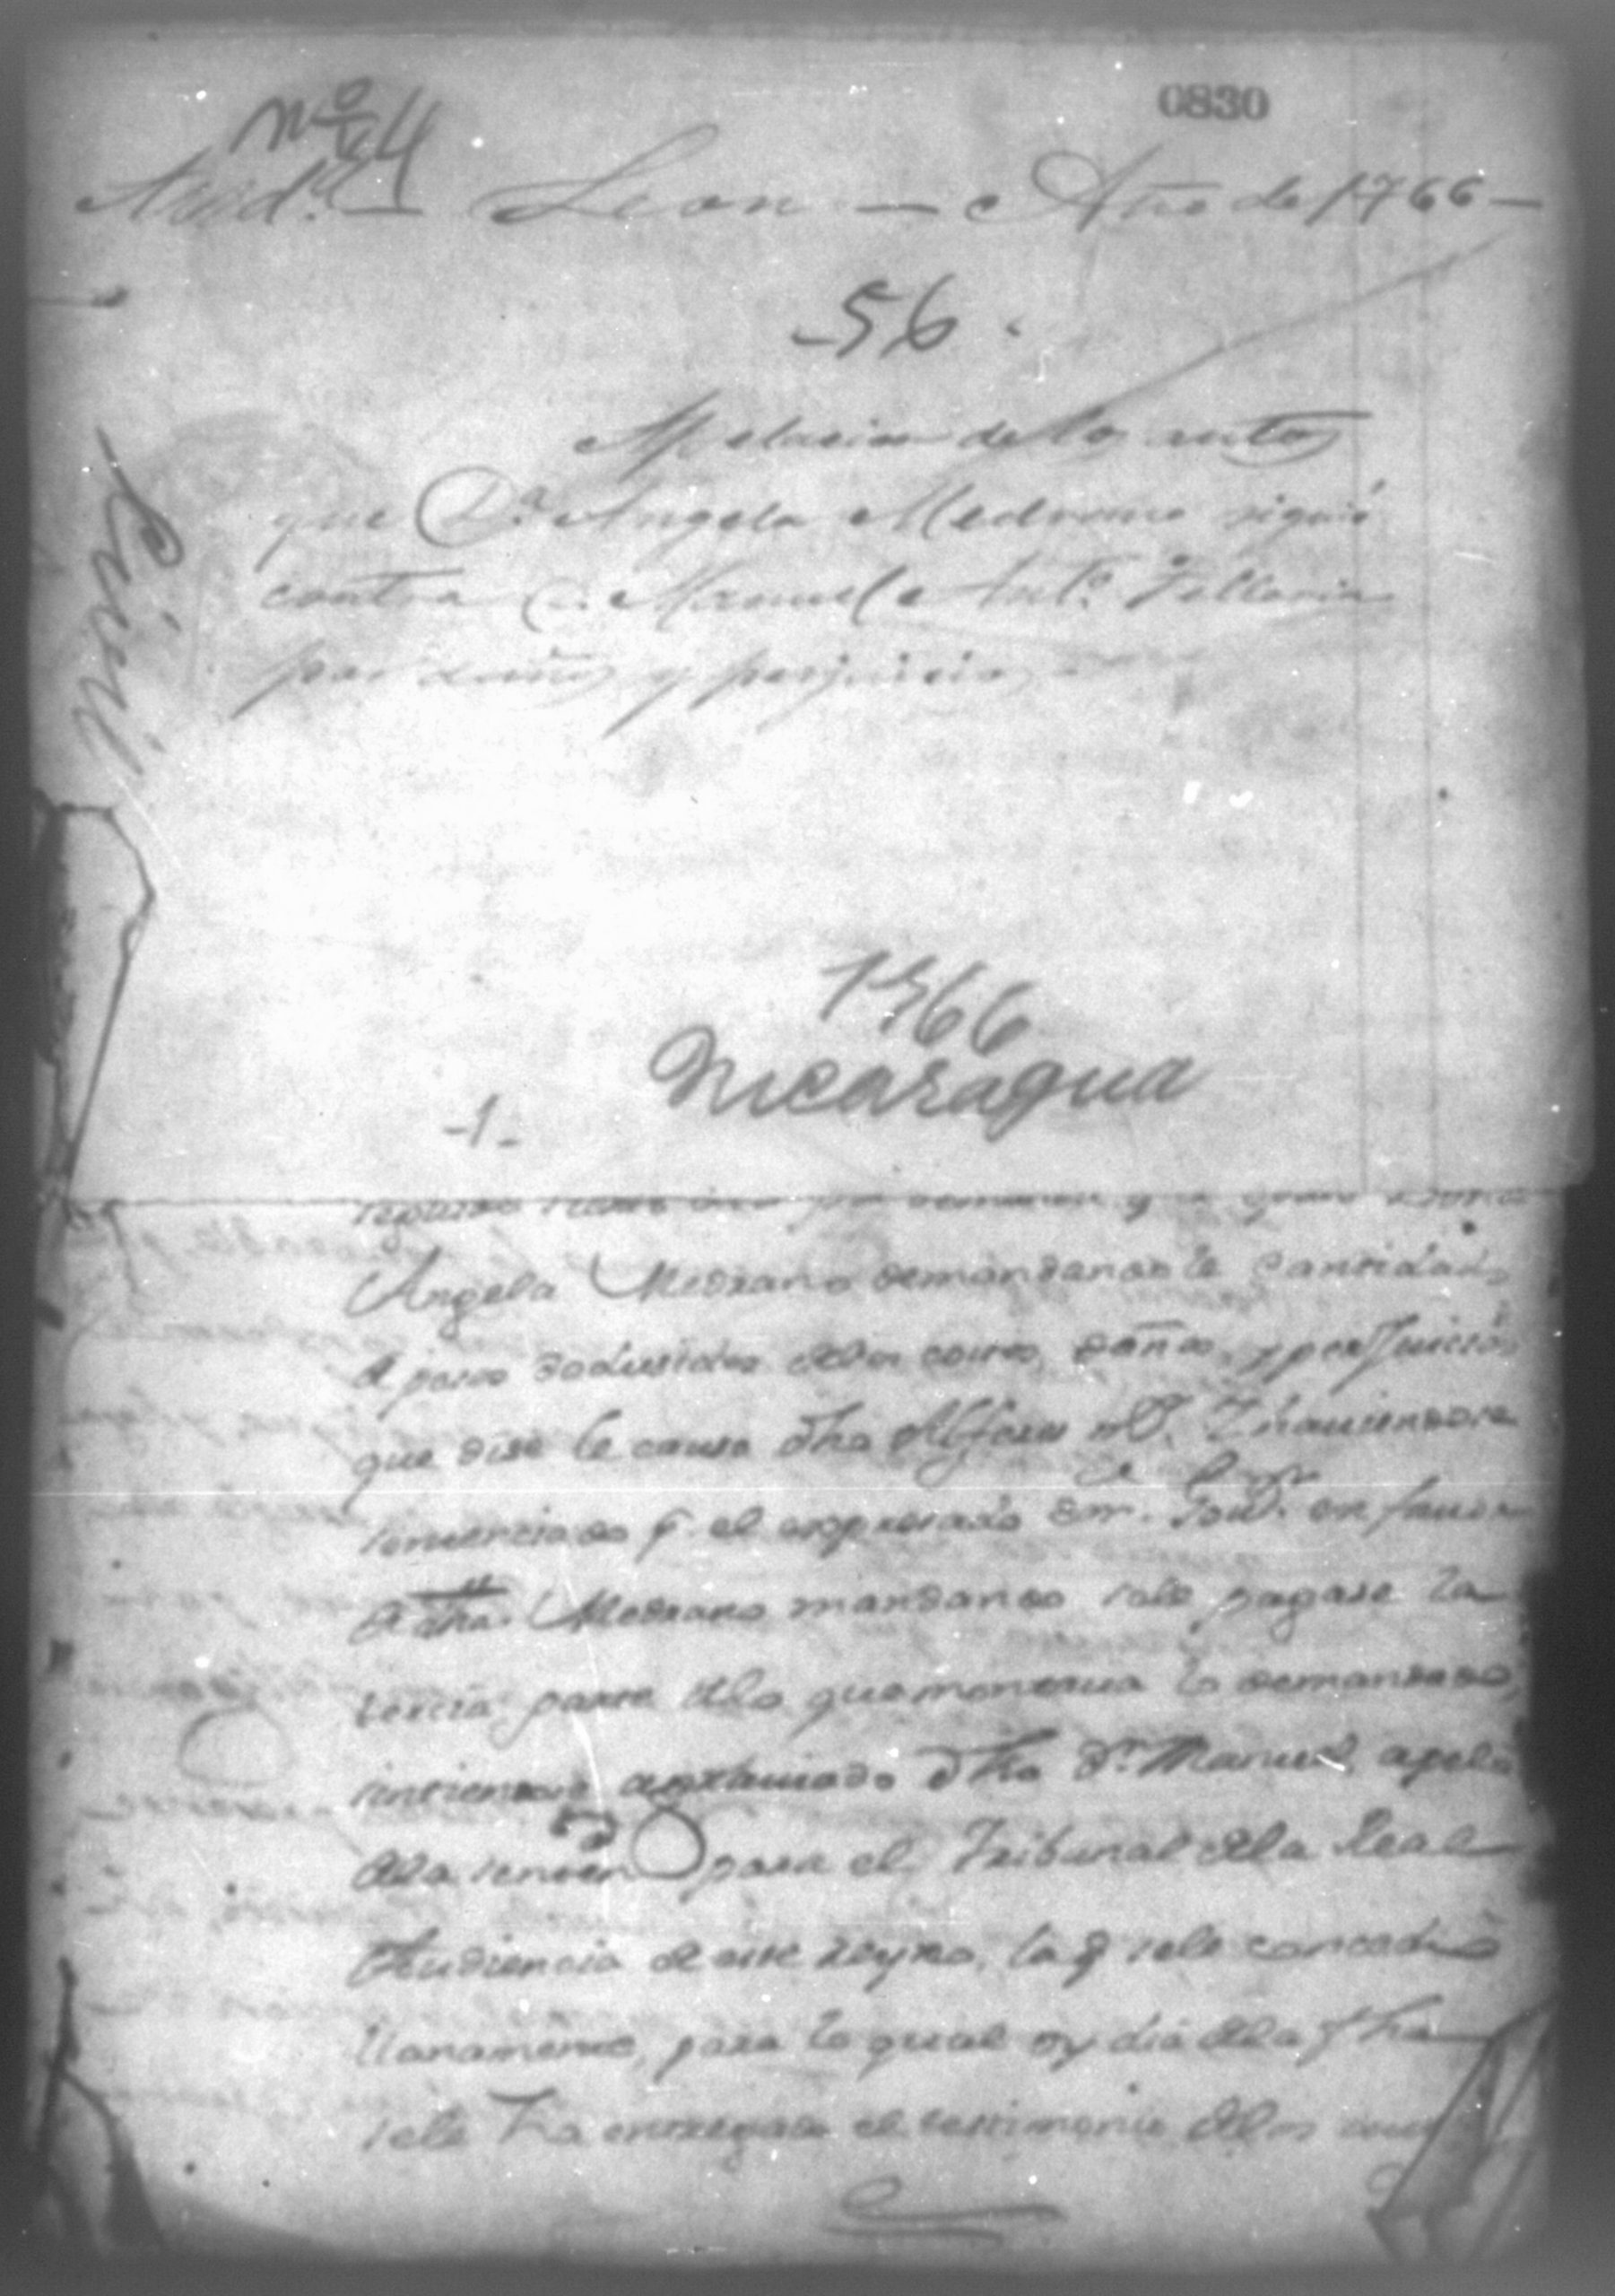 0830
nº 44
Leon — Año de 1766 —
56.
Civil
Relacion de los autos
que Dª Angela Medrano siguió
contra D. Manuel Antº
por daños y perjuicios
1766
Nicaragua
-1-
Angela Medrano demandando la cantidad
de pesos de los costos, daños, y perjuicios
que dise le causa dho Alferes Rl.
sentenciado p. el expresado Sor. en favor
de dha Medrano mandando sele pagase la
tercia parte de lo que montaua lo demandado,
sintiendose agrauiado dho Dn Manuel apelo
de la senten para el Tribunal de la Real
Audiencia de este Reyno, la q sele concedió
llanamente, para lo qual oy dia de la fha
sele ha entregado el testimonio de los